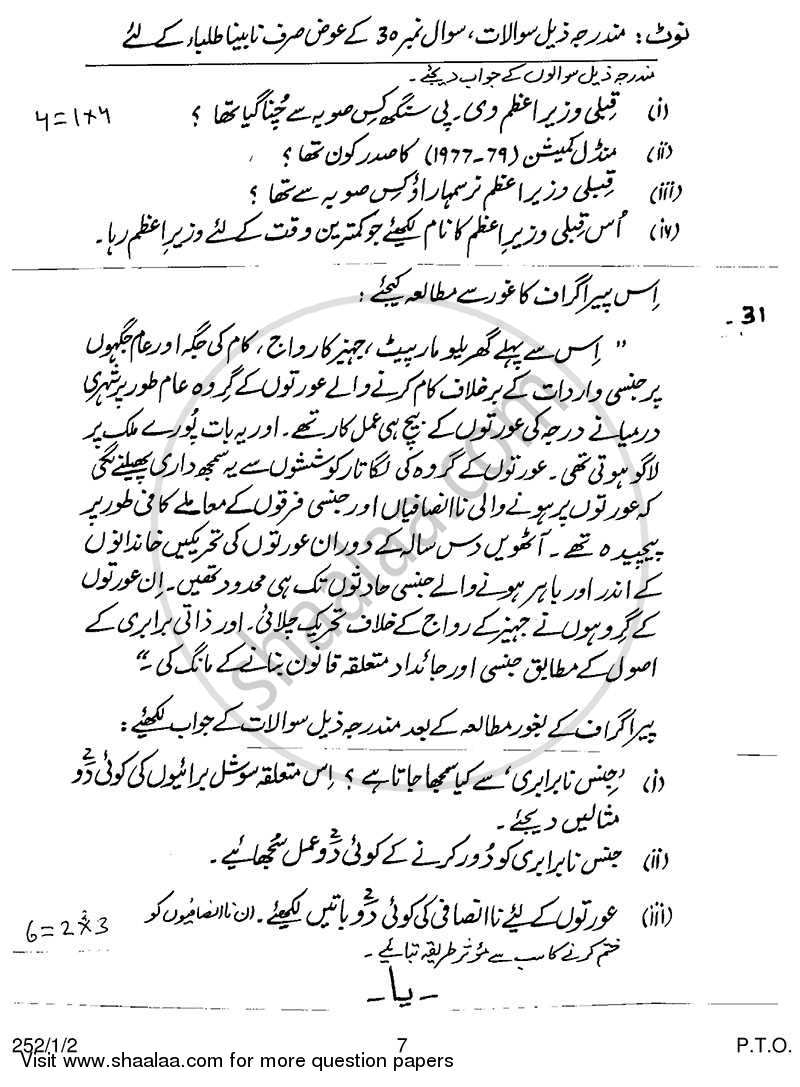 نوٹ: مندرجہ ذیل سوالات، سوال نمبر 30 کے عوض صرف نابینا طلباء کے لئے
مندرجہ ذیل سوالوں کے جواب دیجئے۔
(i) قبلی وزیراعظم وی۔ پی سنگھ کس صوبہ سے چُنا گیا تھا؟ 4=1×4
(ii) منڈل کمیشن (1977-79) کا صدر کون تھا؟
(iii) قبلی وزیراعظم نرسمہا راؤ کس صوبہ سے تھا؟
(iv) اُس قبلی وزیراعظم کا نام لکھئے جو کمترین وقت کے لئے وزیراعظم رہا۔
اِس پیراگراف کا غور سے مطالعہ کیجئے:
31-
" اِس سے پہلے گھریلو مارپیٹ، جہیز کا رواج، کام کی جگہ اور عام جگہوں
پر جنسی واردات کے برخلاف کام کرنے والے عورتوں کے گروہ عام طور پر شہری
درمیانے درجہ کی عورتوں کے بیچ ہی عمل کار تھے۔ اور یہ بات پُورے ملک پر
لاگو ہوتی تھی۔ عورتوں کے گروہ کی لگاتار کوششوں سے یہ سمجھ داری پھیلنے لگی
کہ عورتوں پر ہونے والی ناانصافیاں اور جنسی فرقوں کے معاملے کافی طور پر
پیچیدہ تھے۔ آٹھویں دس سالہ کے دوران عورتوں کی تحریکیں خاندانوں
کے اندر اور باہر ہونے والے جنسی حادثوں تک ہی محدود تھیں۔ اِن عورتوں
کے گروہوں نے جہیز کے رواج کے خلاف تحریک چلائی۔ اور ذاتی برابری کے
اصول کے مطابق جنسی اور جائداد متعلقہ قانون بنانے کے مانگ کی۔"
پیراگراف کے بغور مطالعہ کے بعد مندرجہ ذیل سوالات کے جواب لکھئے:
(i) 'جنس نابرابری' سے کیا سمجھا جاتا ہے؟ اِس متعلقہ سوشل برائیوں کی کوئی دو 2
مثالیں دیجئے۔
(ii) جنس نابرابری کو دُور کرنے کے کوئی دو 2 عمل سُجھائیے۔
(iii) عورتوں کے لئے ناانصافی کی کوئی دو 2 باتیں لکھئے۔ ان ناانصافیوں کو
ختم کرنے کا سب سے مؤثر طریقہ بتائیے۔ 6=2×3
-یا-
252/1/2 7 P.T.O.
Visit www.shaalaa.com for more question papers
shaalaa.com